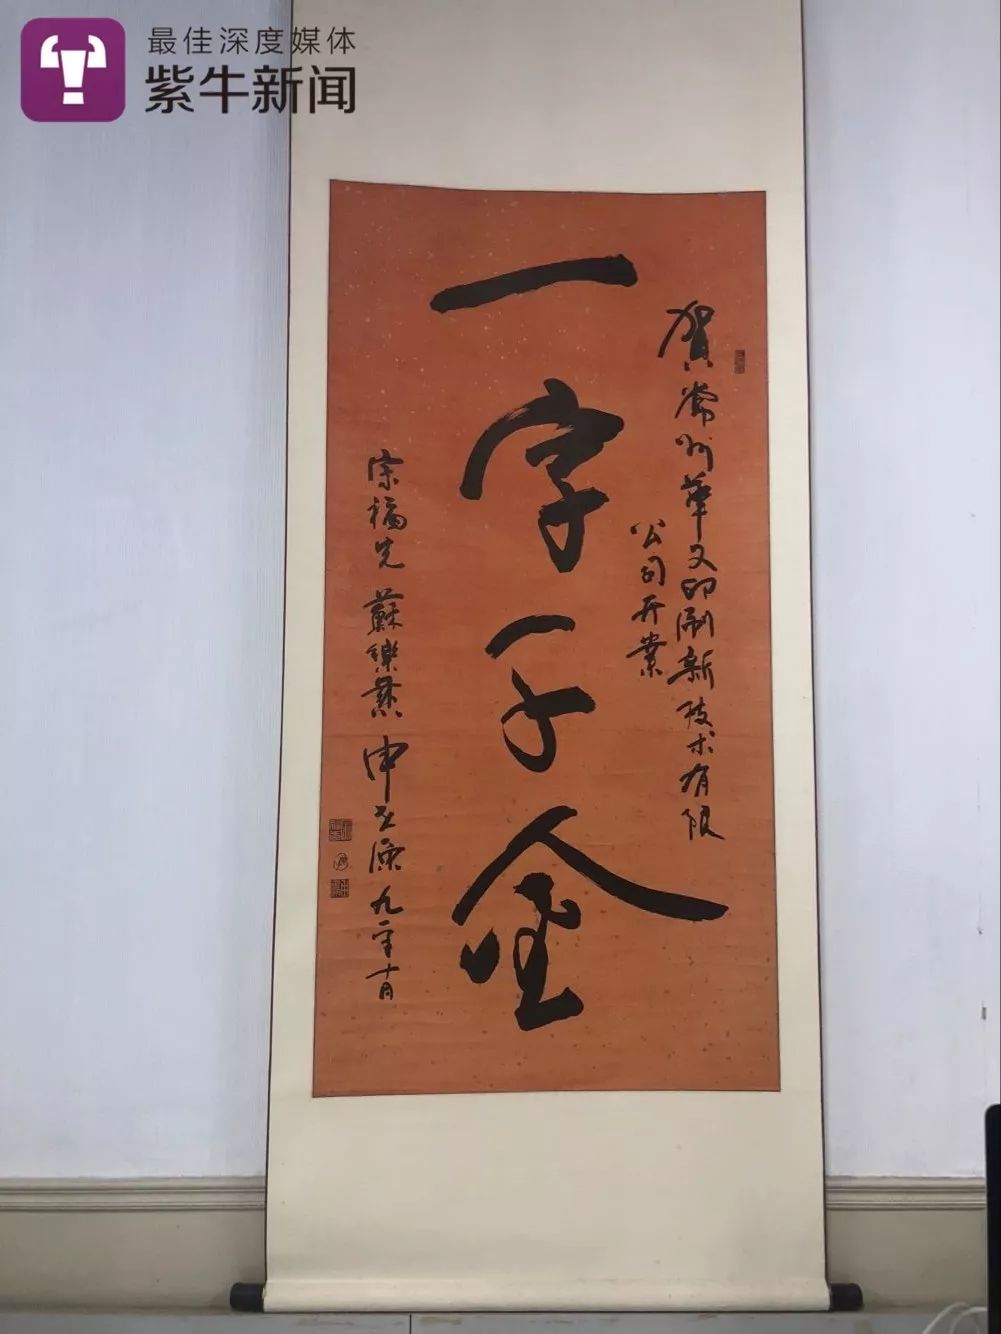 最佳深度媒体
紫牛新闻
一字千金
賀常州華文印刷新技术有限
公司开業
宗福先 蘇樂慈 九二年十月